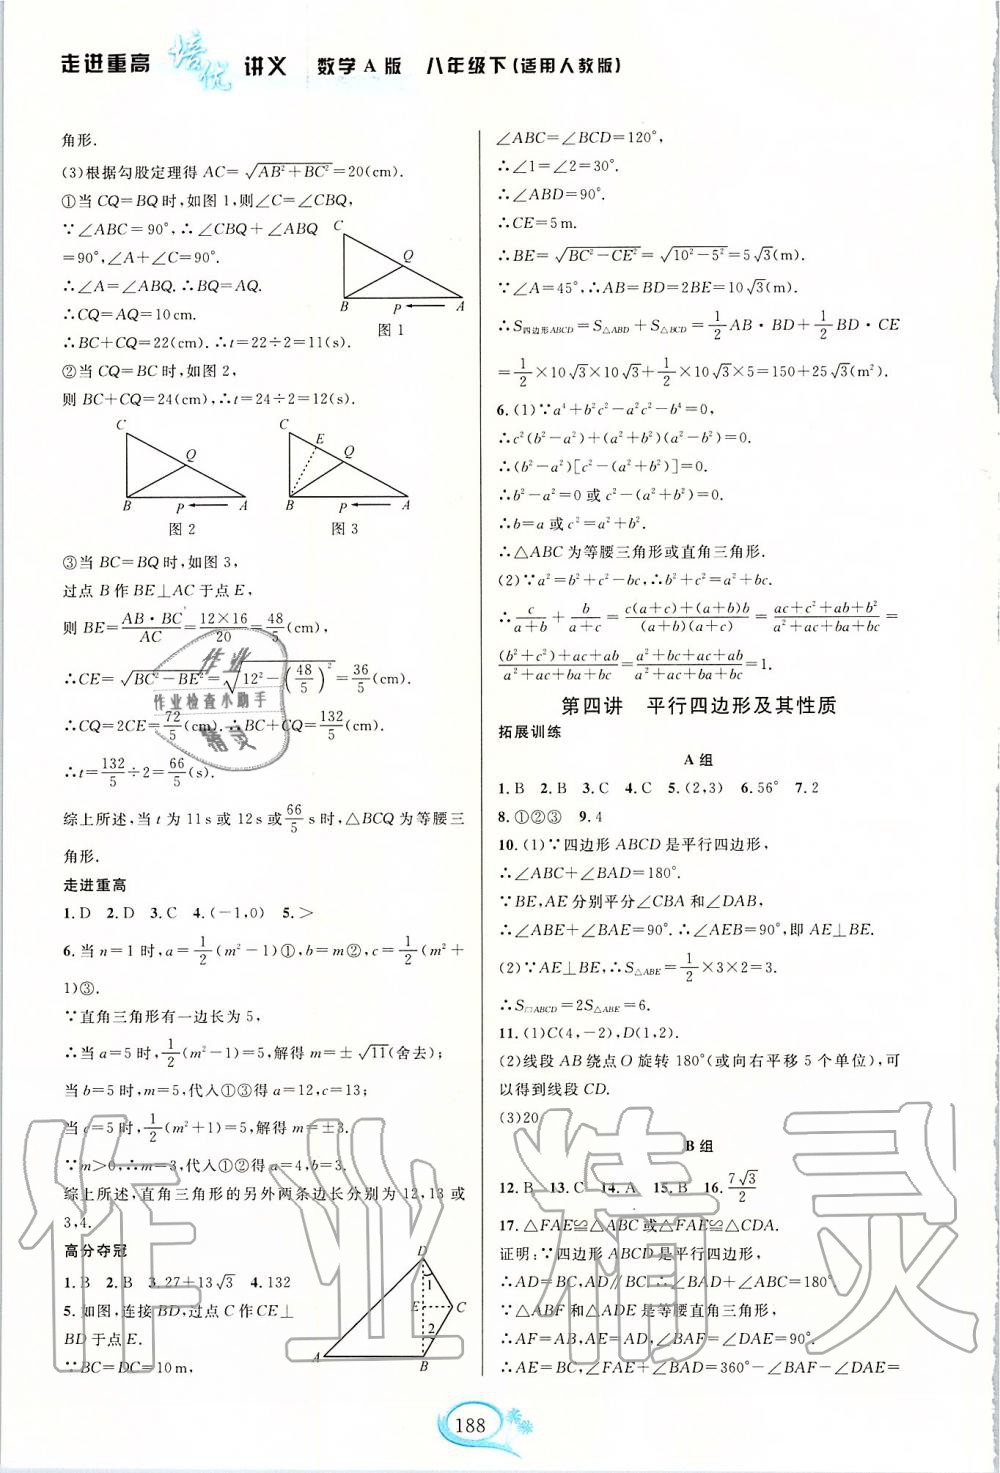 走进重高 培优 讲义 数学A版 八年级下(适用人教版)
角形.
(3)根据勾股定理得 AC=√(AB²+BC²)=20(cm).
①当 CQ=BQ 时,如图 1,则∠C=∠CBQ,
∵∠ABC=90°,∴∠CBQ+∠ABQ
=90°,∠A+∠C=90°.
∴∠A=∠ABQ.∴BQ=AQ.
∴CQ=AQ=10 cm.
∴BC+CQ=22(cm).∴t=22÷2=11(s).
C Q B P A
图 1
②当 CQ=BC 时,如图 2,
则 BC+CQ=24(cm),∴t=24÷2=12(s).
C Q B P A
图 2
C E Q B P A
图 3
③当 BC=BQ 时,如图 3,
过点 B 作 BE⊥AC 于点 E,
则 BE=AB·BC/AC=12×16/20=48/5(cm),
∴CE=√(BC²-BE²)=√(12²-(48/5)²)=36/5(cm).
∴CQ=2CE=72/5(cm).∴BC+CQ=132/5(cm).
∴t=132/5÷2=66/5(s).
综上所述,当 t 为 11 s 或 12 s 或 66/5 s 时,△BCQ 为等腰三
角形.
走进重高
1.D 2.D 3.C 4.(-1,0) 5.>
6.当 n=1 时,a=1/2(m²-1)①,b=m②,c=1/2(m²+
1)③.
∵直角三角形有一边长为 5,
∴当 a=5 时,1/2(m²-1)=5,解得 m=±√11(舍去);
当 b=5 时,m=5,代入①③得 a=12,c=13;
当 c=5 时,1/2(m²+1)=5,解得 m=±3.
∵m>0,∴m=3,代入①②得 a=4,b=3.
综上所述,直角三角形的另外两条边长分别为 12,13 或
3,4.
高分夺冠
1.B 2.B 3.27+13√3 4.132
5.如图,连接 BD,过点 C 作 CE⊥
BD 于点 E.
∵BC=DC=10 m,
D 1 E C 2 A B
∠ABC=∠BCD=120°,
∴∠1=∠2=30°.
∴∠ABD=90°.
∴CE=5 m.
∴BE=√(BC²-CE²)=√(10²-5²)=5√3(m).
∵∠A=45°,∴AB=BD=2BE=10√3(m).
∴S四边形ABCD=S△ABD+S△BCD=1/2 AB·BD+1/2 BD·CE
=1/2×10√3×10√3+1/2×10√3×5=150+25√3(m²).
6.(1)∵a⁴+b²c²-a²c²-b⁴=0,
∴c²(b²-a²)+(a²+b²)(a²-b²)=0.
∴(b²-a²)[c²-(a²+b²)]=0.
∴b²-a²=0 或 c²=a²+b².
∴b=a 或 c²=a²+b².
∴△ABC 为等腰三角形或直角三角形.
(2)∵a²=b²+c²-bc,∴b²+c²=a²+bc.
∴c/(a+b)+b/(a+c)=(c(a+c)+(a+b)b)/((a+b)(a+c))=(ac+c²+ab+b²)/(a²+ac+ba+bc)=
((b²+c²)+ac+ab)/(a²+ac+ba+bc)=(a²+bc+ac+ab)/(a²+ac+ba+bc)=1.
第四讲 平行四边形及其性质
拓展训练
A 组
1.B 2.B 3.C 4.C 5.(2,3) 6.56° 7.2
8.①②③ 9.4
10.(1)∵四边形 ABCD 是平行四边形,
∴∠ABC+∠BAD=180°.
∵BE,AE 分别平分∠CBA 和∠DAB,
∴∠ABE+∠BAE=90°.∴∠AEB=90°,即 AE⊥BE.
(2)∵AE⊥BE,∴S△ABE=1/2×3×2=3.
∴S□ABCD=2S△ABE=6.
11.(1)C(4,-2),D(1,2).
(2)线段 AB 绕点 O 旋转 180°(或向右平移 5 个单位),可
以得到线段 CD.
(3)20
B 组
12.B 13.C 14.A 15.B 16.7√3/2
17.△FAE≌△ABC 或△FAE≌△CDA.
证明:∵四边形 ABCD 是平行四边形,
∴AD=BC,AD∥BC.∴∠BAD+∠ABC=180°.
∵△ABF 和△ADE 是等腰直角三角形,
∴AF=AB,AE=AD,∠BAF=∠DAE=90°.
∴AE=BC,∠FAE+∠BAD=360°-∠BAF-∠DAE=
188
作业
作业检查小助手
精灵
作业精灵